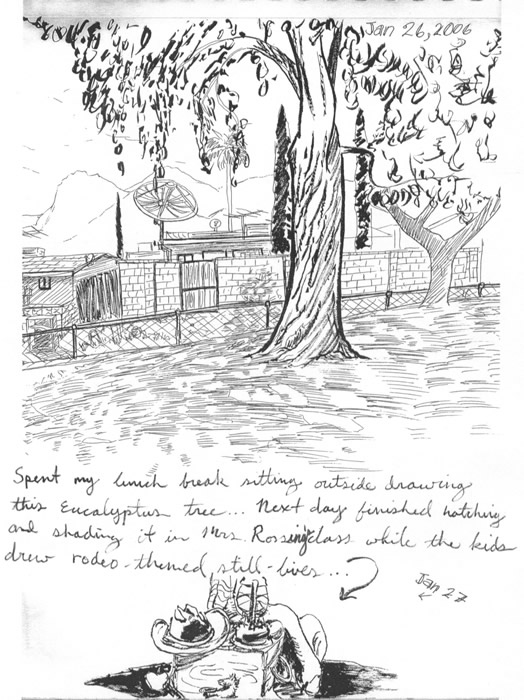 Jan 26, 2006
Spent my lunch break sitting outside drawing
this Eucalyptus tree... Next day finished hatching
and shading it in Mrs. Rossing class while the kids
drew rodeo-themed still-lives...
Jan 27